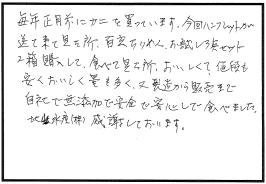 毎年正月前にカニを買っています。今回パンフレットが
送て来て見た所、百玄ちりめん、お試し3点セット
2箱購入して、食べて見た所、おいしくて、値段も
安くおいしく量も多く、又製造から販売まで
自社で無添加で安全で安心して食べました。
北生水産(株)感謝しております。